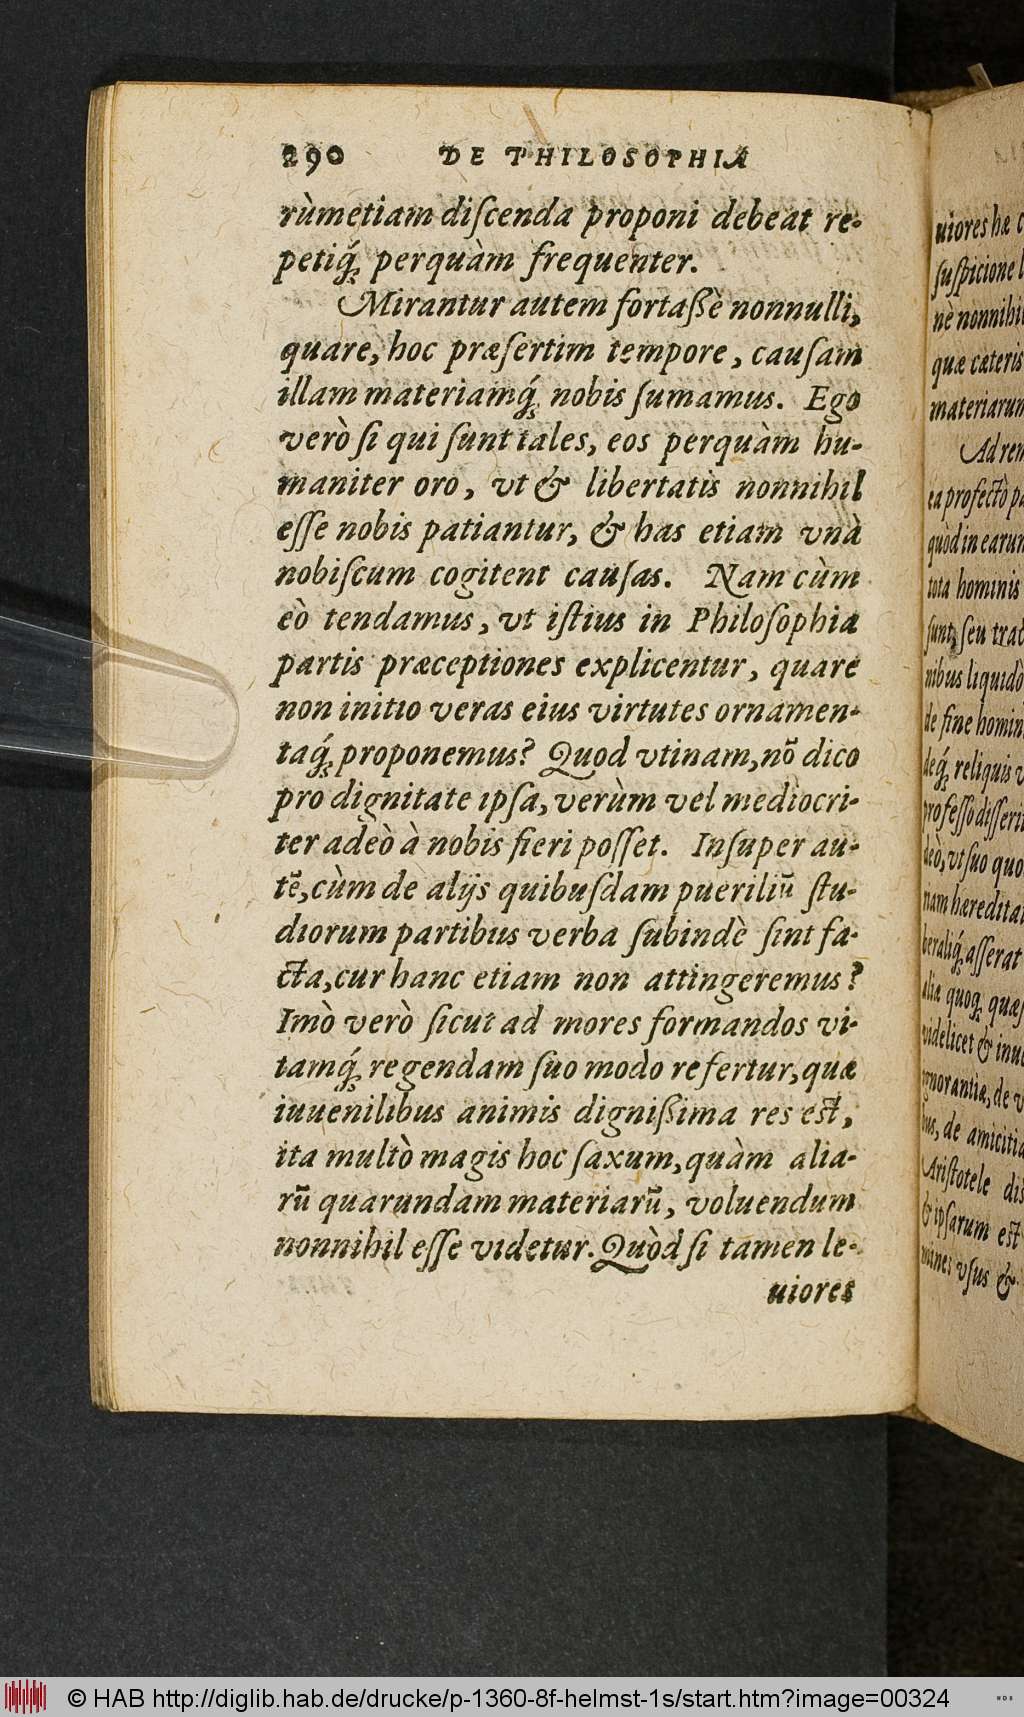 290 DE PHILOSOPHIA
rùmetiam diſcenda proponi debeat re-
petiq́; perquàm frequenter.
Mirantur autem fortaßè nonnulli,
quare, hoc præſertim tempore, cauſam
illam materiamq́; nobis ſumamus. Ego
verò ſi qui ſunt tales, eos perquàm hu-
maniter oro, vt & libertatis nonnihil
eſſe nobis patiantur, & has etiam vnà
nobiſcum cogitent cauſas. Nam cùm
eò tendamus, vt iſtius in Philoſophia
partis præceptiones explicentur, quare
non initio veras eius virtutes ornamen-
taq́; proponemus? Quod vtinam, nõ dico
pro dignitate ipſa, verùm vel mediocri-
ter adeò à nobis fieri poſſet. Inſuper au-
tẽ, cùm de alijs quibuſdam pueriliũ ſtu-
diorum partibus verba ſubindè ſint fa-
cta, cur hanc etiam non attingeremus?
Imò verò ſicut ad mores formandos vi-
tamq́; regendam ſuo modo refertur, quæ
iuuenilibus animis dignißima res eſt,
ita multò magis hoc ſaxum, quàm alia-
rũ quarundam materiarũ, voluendum
nonnihil eſſe videtur. Quòd ſi tamen le-
uiores
uiores hæ
ſuſpicione
nè nonnihil
quæ cæteris
materiarum
Ad rem
ea profectò
quòd in earum
tota hominis
ſunt, ſeu
nibus liquidò
de fine
deq́; reliquis
profeſſo
deò, vt ſuo
nam
beraliq́; aſſerat
aliæ quoq;
videlicet &
ignorantiæ, de
bus, de amicitia
Ariſtotele
& ipſarum eſt
vſus &
© HAB http://diglib.hab.de/drucke/p-1360-8f-helmst-1s/start.htm?image=00324